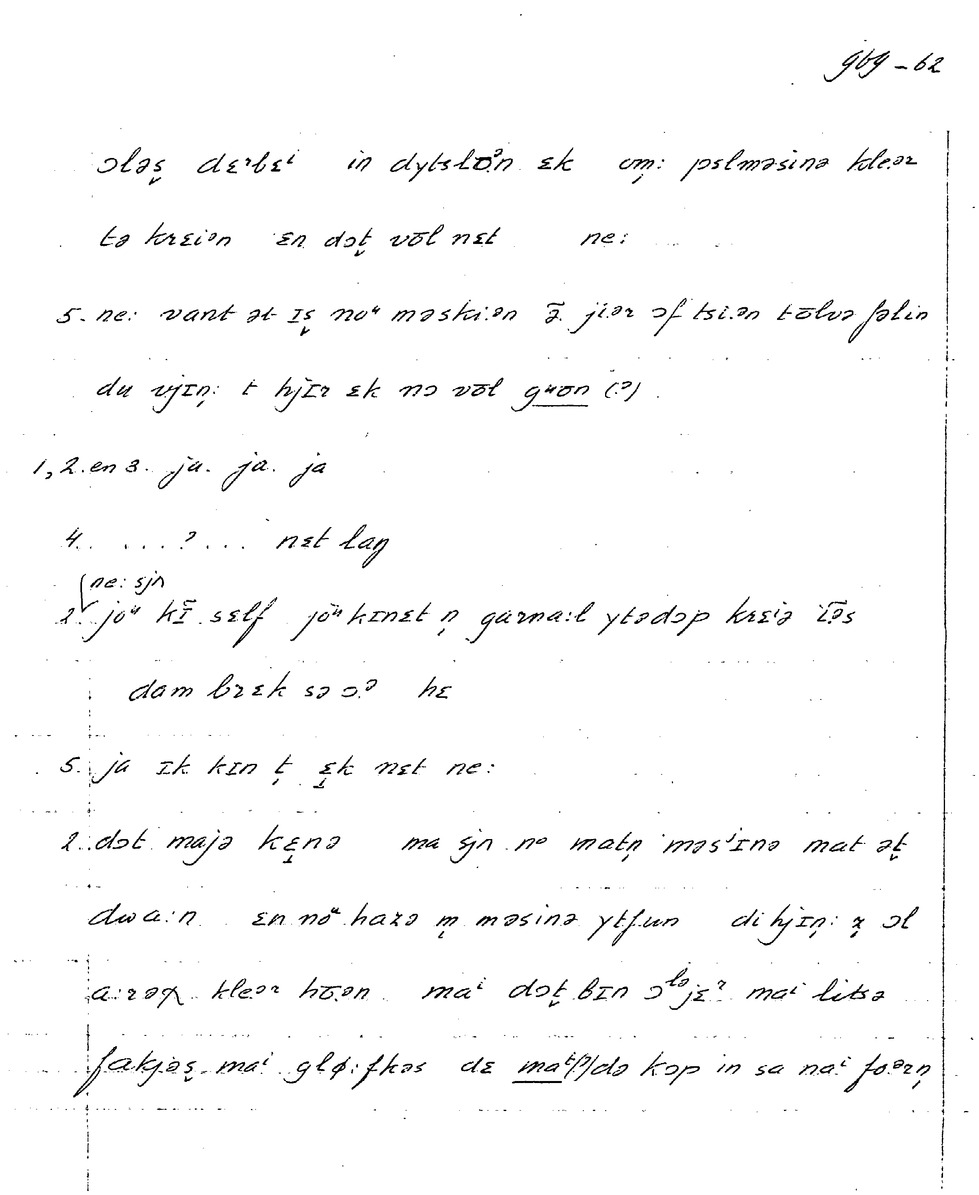 gbg - 62
ɔləs̬ dɛʳbɛⁱ in dytslōᵊn ɛk om̩: pɛlməsinə kle.ər
tə krɛiən ɛn dɔt̬ vōl nɛt ne:
5. ne: vant ət ɪs̬ noᵘ məski.ən ə̄ ji.ər ɔf tsi.ən tōlvə fəlin
du vjɪn̩: t hjɪr ɛk nɔ vōl gᵘon (?).
1, 2. en 3. ja. ja. ja
4. . . . ? . . . nɛt laŋ
ne: sjn
2. joᵘ kī sɛlf jōᵘ kɪnɛt n̩ garna:l ytədɔp krɛiə ɪ̄əs
dam brɛk sə ɔ.ᵊ hɛ
5. ja ɪk kɪn t̬ ɛk nɛt ne:
2. dɔt majə kɛnə ma sjn nᵒ matn̩ məsⁱɪnə mat ət̬
dwa:n ɛn nōᵘ hazə m̩ məsinə ytf.un di hjɪn̩: z̩ ɔl
a:rəχ kleər hō.ən maⁱ dɔt̬ bɪn ɔˡᵊjɛˀ maⁱ litsə
fakjəs̬ maⁱ glø:fkəs dɛ maᵗ(?)də kɔp in sa naⁱ fo.ərn̩